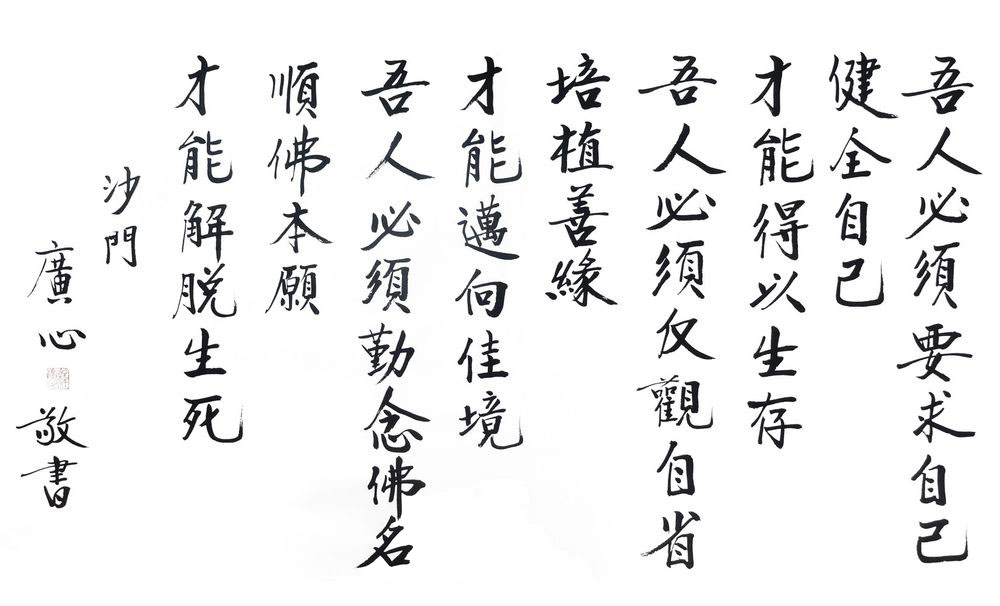 吾人必須要求自己
健全自己
才能得以生存
吾人必須仅觀自省
培植善緣
才能邁向佳境
吾人必須勤念佛名
順佛本願
才能解脫生死
沙門
廣心
敬書